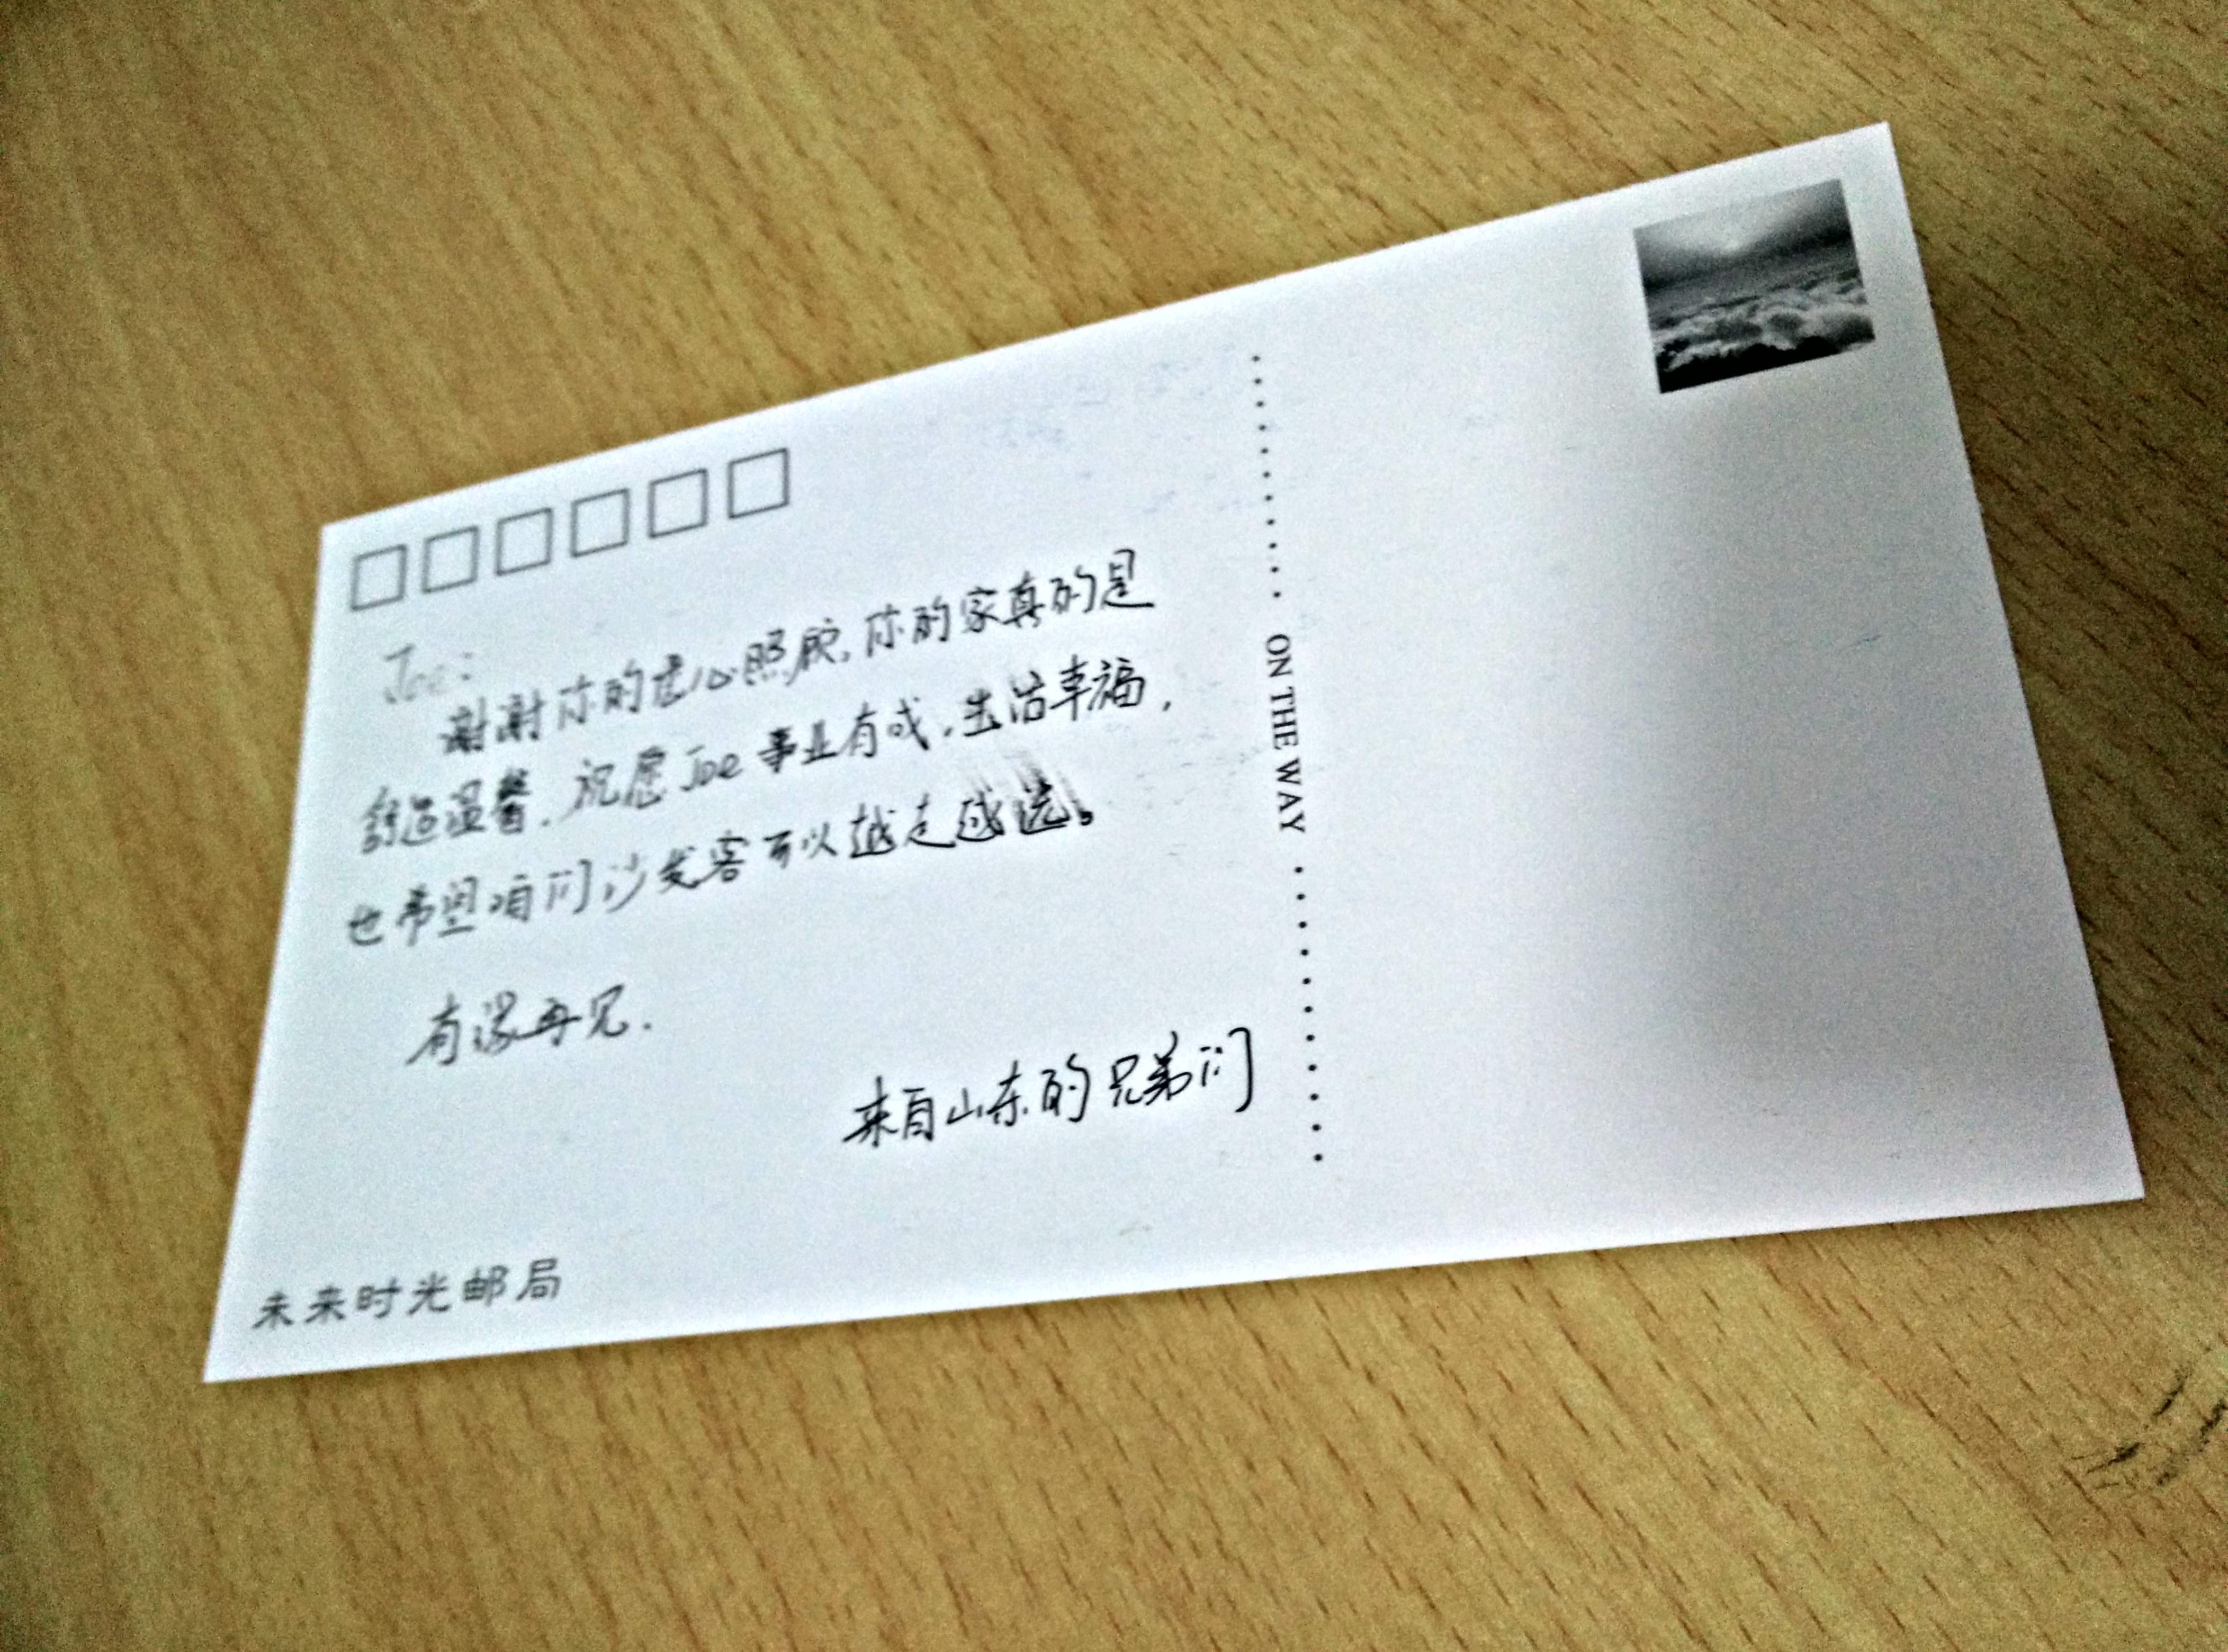 Joe:
谢谢你的悉心照顾,你的家真的是
舒适温馨.祝愿Joe事业有成,生活幸福,
也希望咱们沙发客可以越走越远。
有缘再见.
来自山东的兄弟们
ON THE WAY
未来时光邮局